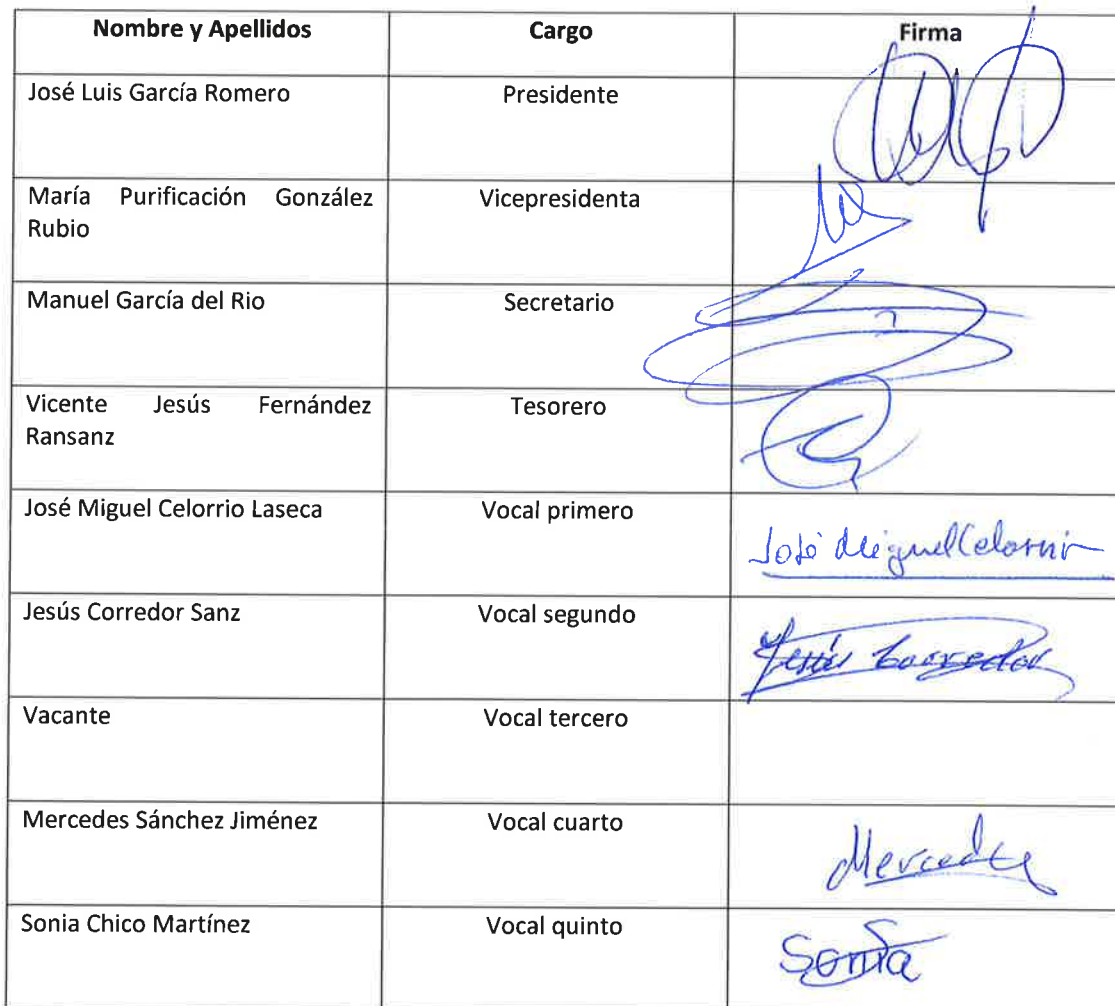 Nombre y Apellidos Cargo Firma
José Luis García Romero Presidente
María Purificación González Vicepresidenta
Rubio
Manuel García del Rio Secretario
Vicente Jesús Fernández Tesorero
Ransanz
José Miguel Celorrio Laseca Vocal primero
José Miguel Celorrio
Jesús Corredor Sanz Vocal segundo
Jesús Corredor
Vacante Vocal tercero
Mercedes Sánchez Jiménez Vocal cuarto
Mercedes
Sonia Chico Martínez Vocal quinto
Sonia